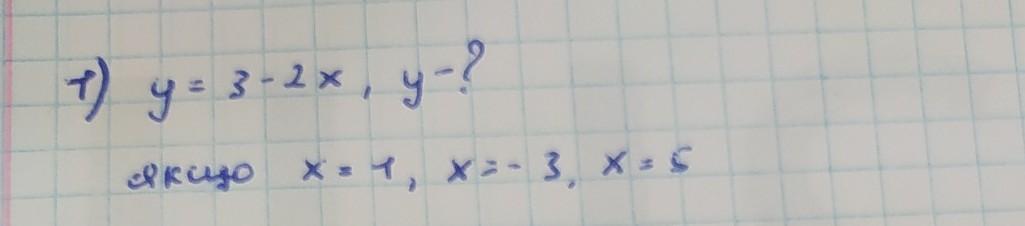 1) y = 3 - 2x, y - ?
якщо x = 1, x = - 3, x = 5